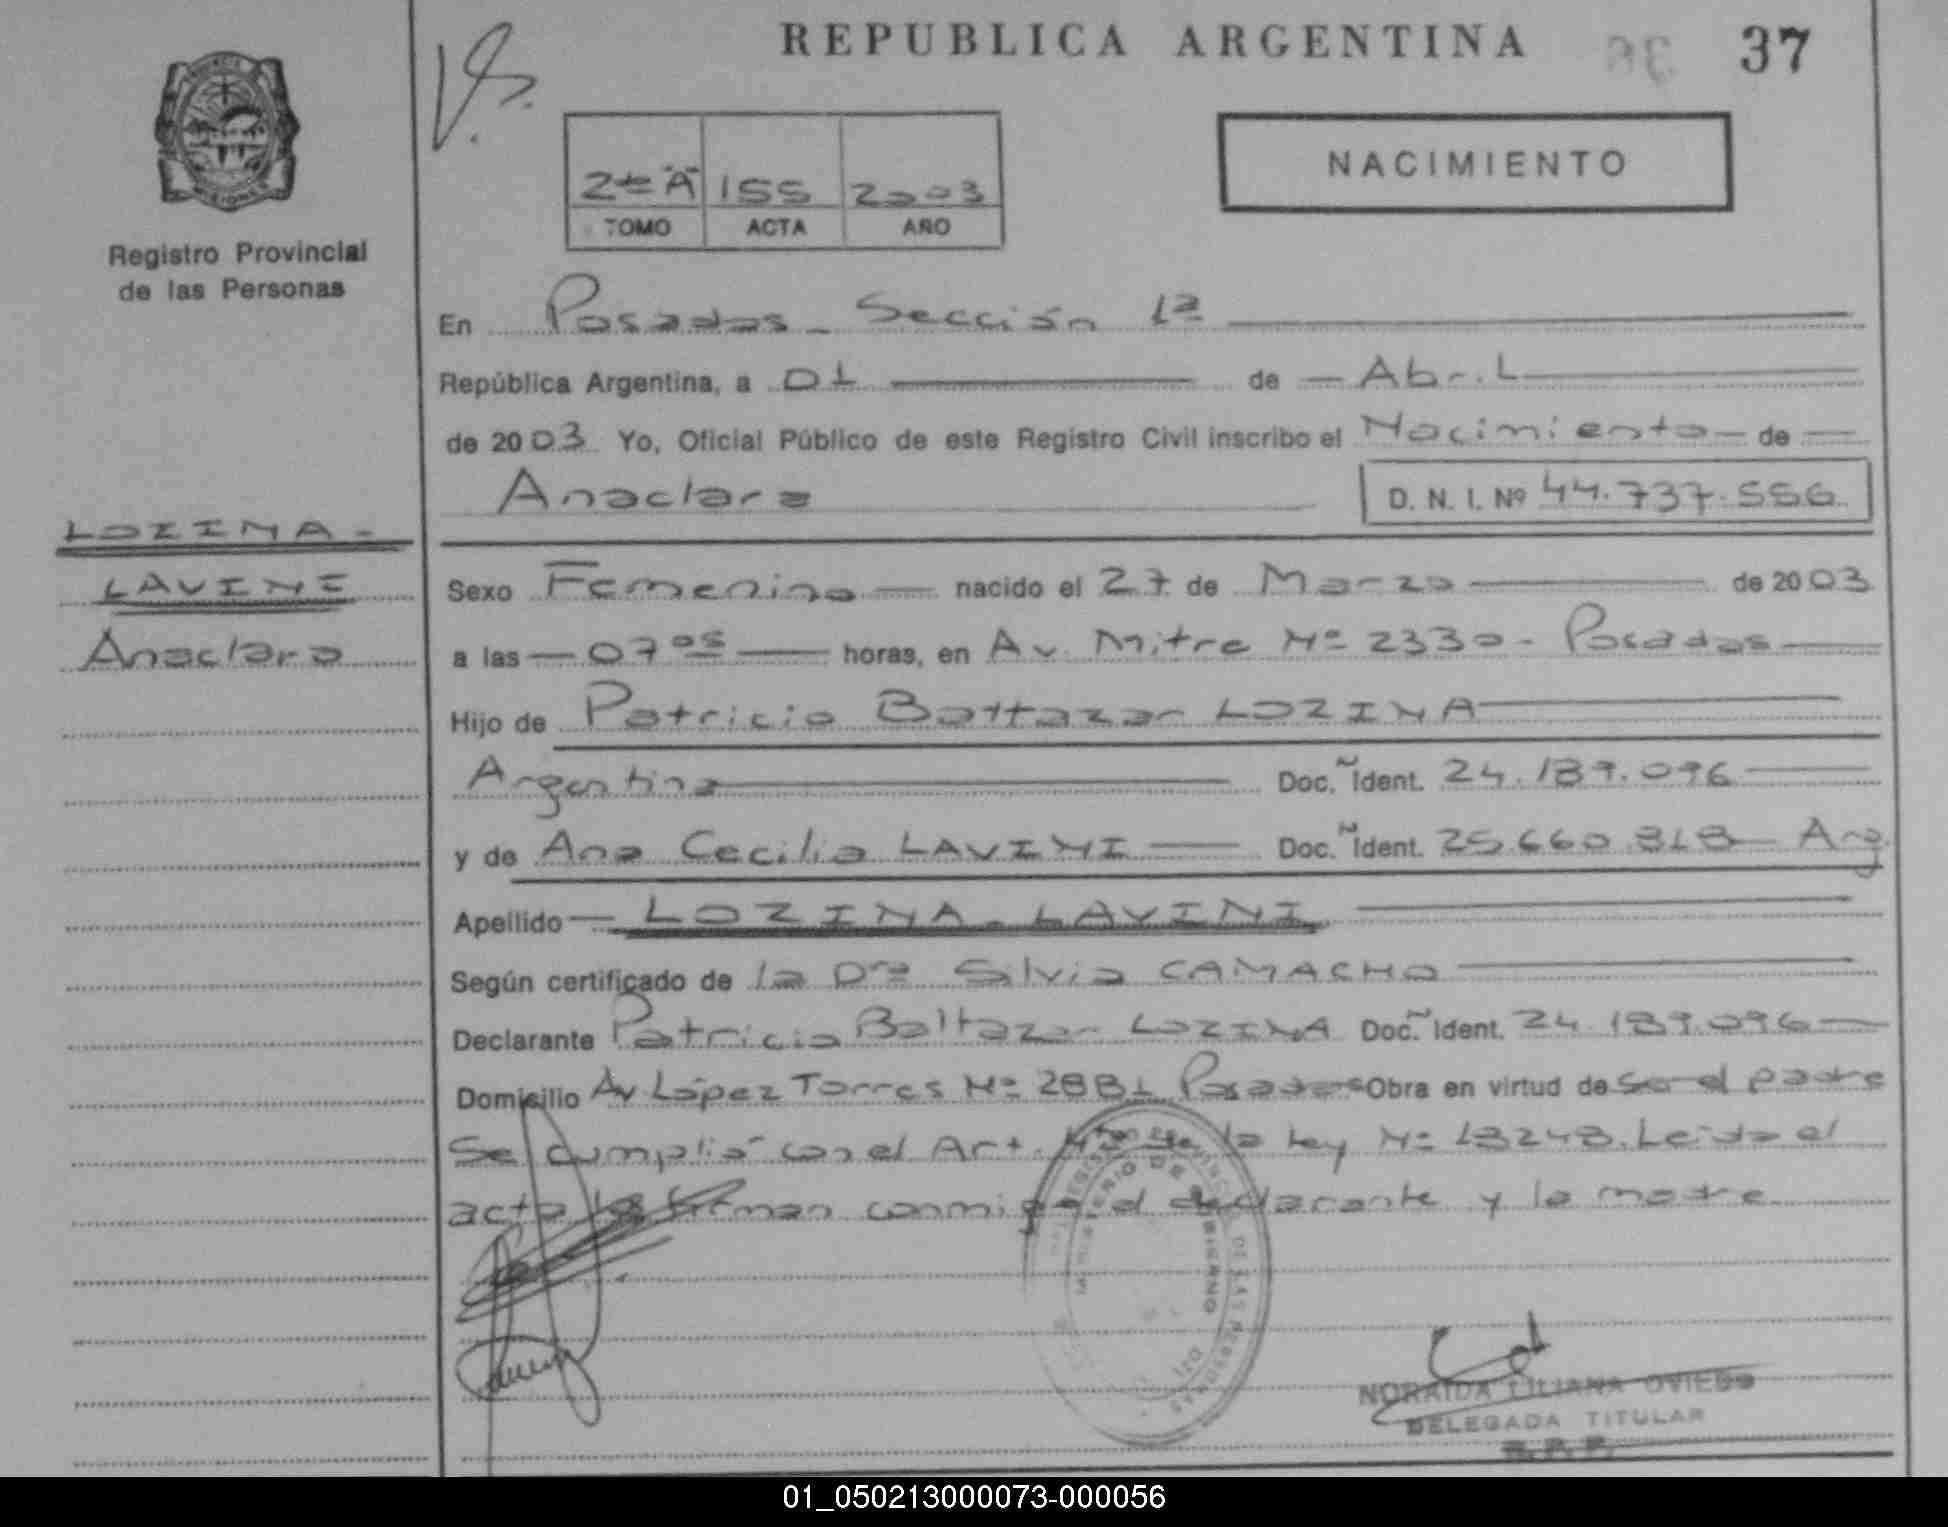 REPUBLICA ARGENTINA
37
2do "A" 155 2003
TOMO ACTA AÑO
NACIMIENTO
Registro Provincial
de las Personas
En Posadas - Sección 1ª
República Argentina, a 01 de Abril
de 2003 Yo, Oficial Público de este Registro Civil inscribo el Nacimiento de
Anaclara D. N. I. Nº 44.737.556
LOZINA -
LAVINI
Anaclara
Sexo Femenino nacido el 27 de Marzo de 2003
a las 07 05 horas, en Av. Mitre Nº 2330 - Posadas
Hijo de Patricio Baltazar LOZINA
Argentina Doc. Ident. 24.189.096
y de Ana Cecilia LAVINI Doc. Ident. 25.660.818 Arg
Apellido LOZINA - LAVINI
Según certificado de la Dra Silvia CAMACHO
Declarante Patricio Baltazar LOZINA Doc. Ident. 24.189.096
Domicilio Av López Torres Nº 2881 Posadas Obra en virtud de ser el padre
Se cumplió con el Art. de la Ley Nº 18248. Leida el
acta la firman conmigo el declarante y la madre
NORAIDA LILIANA OVIEDO
DELEGADA TITULAR
R.P.P.
01_050213000073-000056